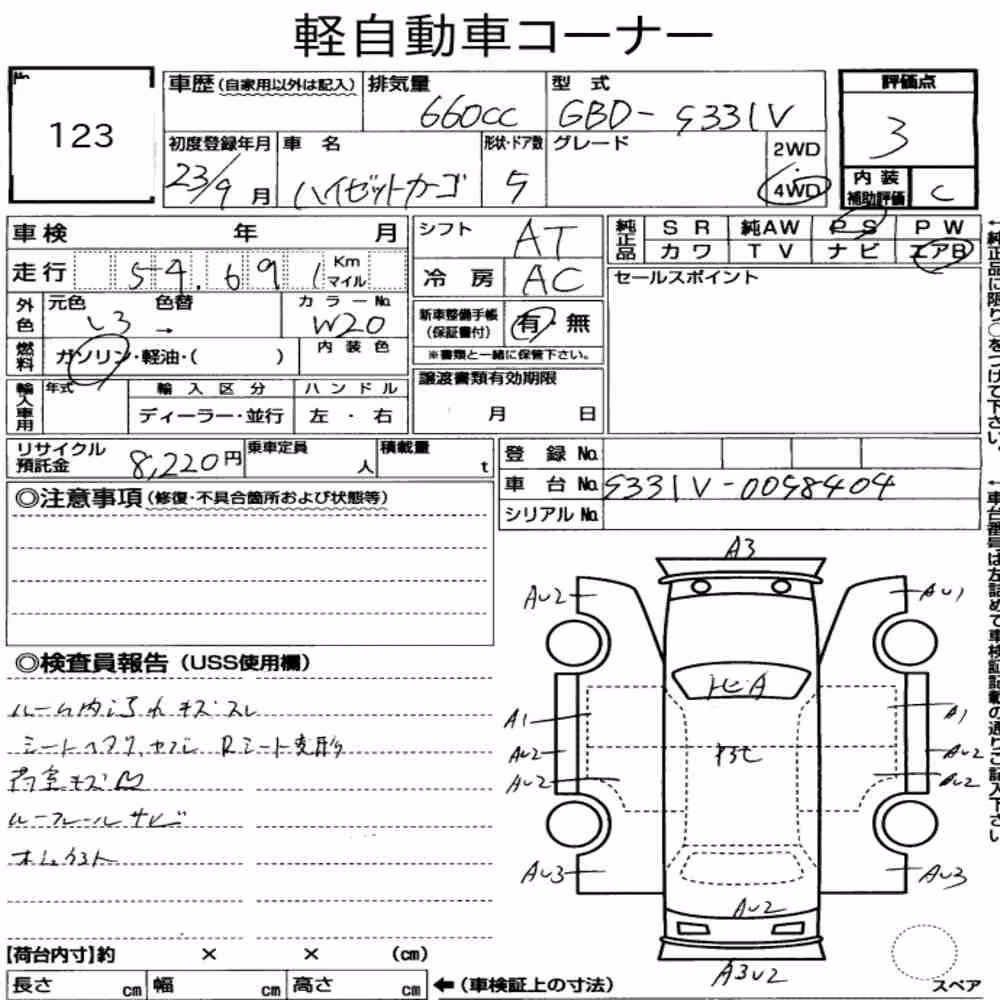 軽自動車コーナー
No.
123
車歴(自家用以外は記入) 排気量 型式 評価点
660cc GBD-S331V 3
初度登録年月 車名 形状・ドア数 グレード 2WD
23/9月 ハイゼットカーゴ 5 4WD
内装補助評価 C
車検 年 月
シフト AT
純正品 SR 純AW PS PW
カワ TV ナビ エアB
走行 54.691 Km マイル
冷房 AC
セールスポイント
外色 元色 色替 カラーNo.
シロ → W20
新車整備手帳(保証書付) 有・無
※書類と一緒に保管下さい。
燃料 ガソリン・軽油・( ) 内装色
輸入車用 年式 輸入区分 ハンドル
ディーラー・並行 左・右
譲渡書類有効期限
月 日
リサイクル預託金 8,220円 乗車定員 人 積載量 t
登録No.
車台No. S331V-0058404
シリアルNo.
◎注意事項(修復・不具合箇所および状態等)
←純正品に限り○をつけて下さい。
←車台番号は左詰めで車検証記載の通りご記入下さい
◎検査員報告(USS使用欄)
ルーム内汚れ キズ スレ
シートヘタリ、ヤブレ Rシート変形
荷室キズ凹
ルーフレールサビ
A3
AU2 AU1
トビA
A1 A1
AU2 AU2
AU2 AU2
AU3 AU3
AU2
A3U2
【荷台内寸】約 × × (cm)
長さ cm 幅 cm 高さ cm
←(車検証上の寸法)
スペア